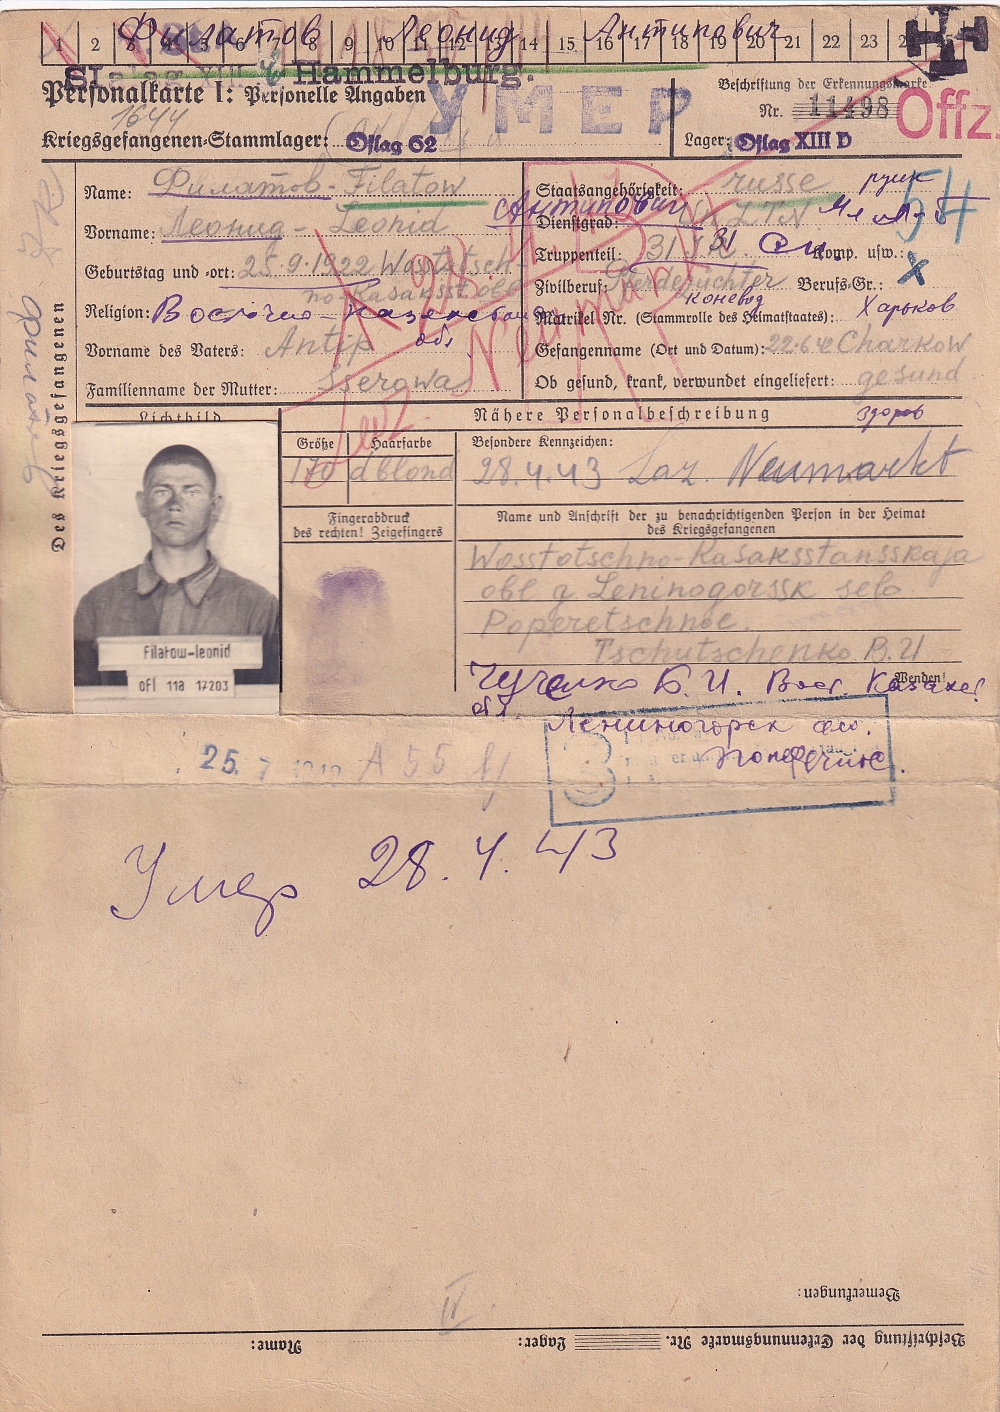 1 2 3 4 5 6 7 8 9 10 11 12 13 14 15 16 17 18 19 20 21 22 23
Филатов Леонид Антипович
Hammelburg.
Personalkarte I: Personelle Angaben
1644
УМЕР
Beschriftung der Erkennungsmarke
Nr. 11498
Offz.
Kriegsgefangenen-Stammlager: Oflag 62
Lager: Oflag XIII D
Des Kriegsgefangenen
Филатов
Name: Филатов - Filatow
Vorname: Леонид - Leonid
Антипович
Geburtstag und -ort: 25.9.1922 Wosstotsch-
no-Kasaksst. obl.
Religion: Восточно-Казахстан
обл.
Vorname des Vaters: Antip
Familienname der Mutter: Sserowa
Staatsangehörigkeit: russe русск
54
Dienstgrad: LTN
Truppenteil: 31 Komp. usw.:
Zivilberuf: Pferdezüchter Berufs-Gr.: X
коневод
Matrikel Nr. (Stammrolle des Heimatstaates): Харьков
Gefangenname (Ort und Datum): 22.6.42 Charkow
Ob gesund, krank, verwundet eingeliefert: gesund
здоров
Neumark
Lichtbild
Nähere Personalbeschreibung
Größe Haarfarbe
170 d blond
Besondere Kennzeichen:
28.4.43 Laz. Neumarkt
Fingerabdruck
des rechten! Zeigefingers
Name und Anschrift der zu benachrichtigenden Person in der Heimat
des Kriegsgefangenen
Wosstotschno-Kasaksstansskaja
obl g. Leninogorssk selo
Poperetschnoe.
Tschutschenko B. U
Wenden!
Filatow-leonid
ofl 11a 17203
Чученко Б. И. Вост. Казахст
обл. Лениногорск сел.
Поперечное.
25. 7 A 55
Умер 28. 4. 43
IV
Bemerkungen:
Beschriftung der Erkennungsmarke Nr.
Lager:
Name: